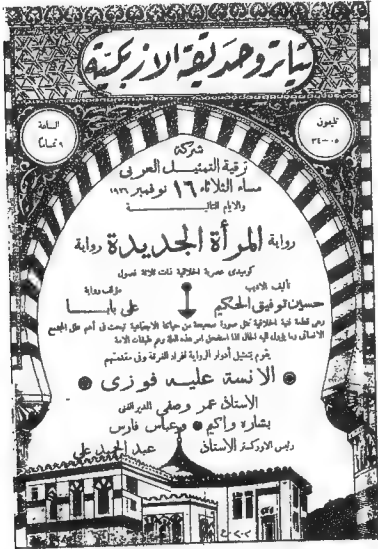 تياترو حديقة الازبكية
تليفون
٠٥-٣٤
الساعة
٩ تماما
شركة
ترقية التمثيل العربى
مساء الثلاثاء ١٦ نوفمبر ١٩٢٦
والايام التالية
رواية المرأة الجديدة رواية
كوميدى عصرية اخلاقية ذات ثلاثة فصول
تأليف الاديب
حسين توفيق الحكيم
مؤلف رواية
على بابا
وهى قطعة فنية اخلاقية تمثل صورة صحيحة من حياتنا الاجتماعية تبحث فى اهم علل المجتمع
الانسانى وما يؤول اليه الحال اذا استفحل امر هذه العلة وعم طبقات الامة
يقوم بتمثيل أدوار الرواية افراد الفرقة وفى مقدمتهم
الانسة عليه فوزى
الاستاذ عمر وصفى المدير الفنى
بشاره واكيم وعباس فارس
رئيس الاوركستر الاستاذ عبد الحميد على